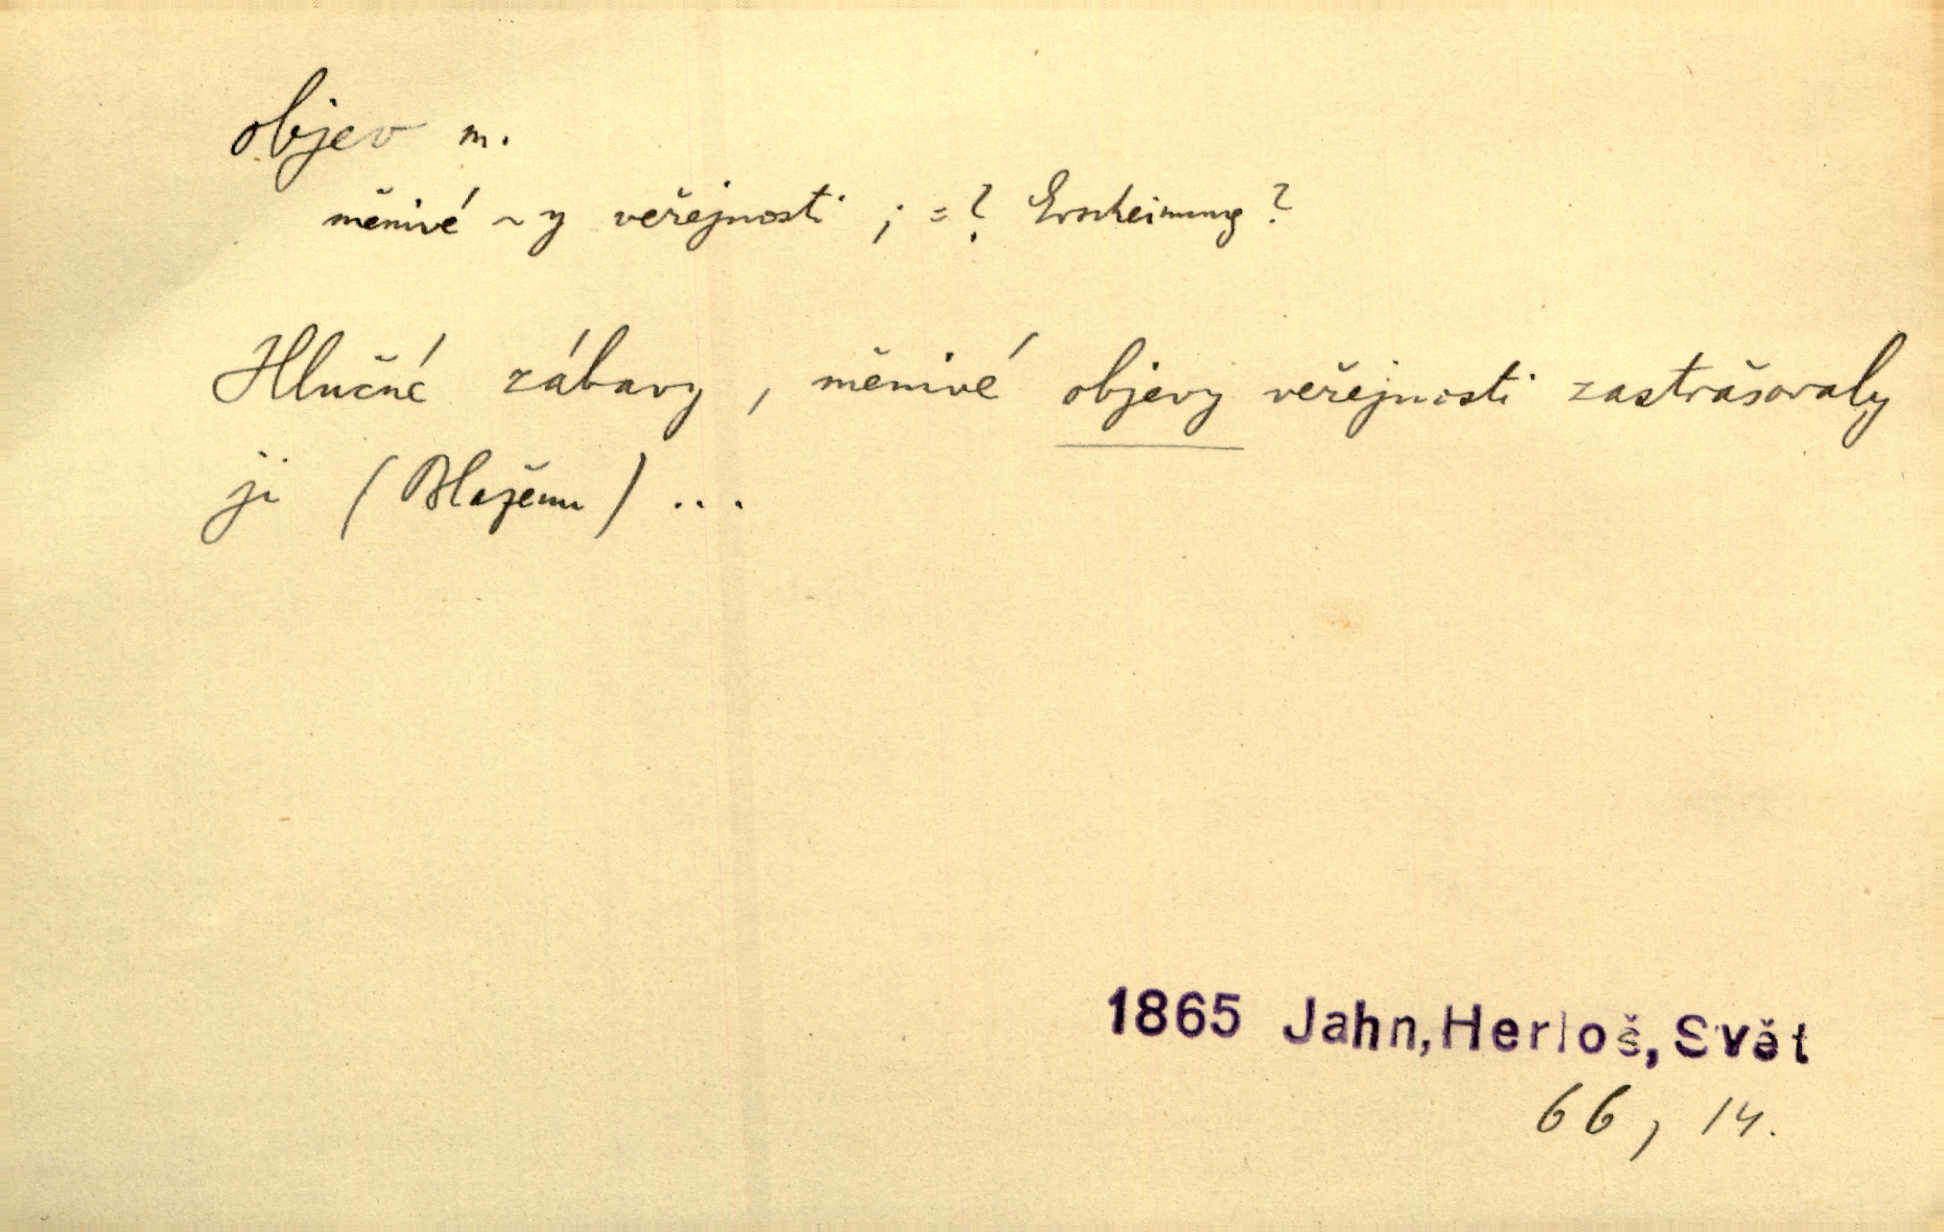 objev m.
měnivé ~y veřejnosti ; =? Erscheinung?
Hlučné zábavy, měnivé objevy veřejnosti zastrašovaly
ji (Blaženu) ...
1865 Jahn, Herloš, Svět
66, 14.